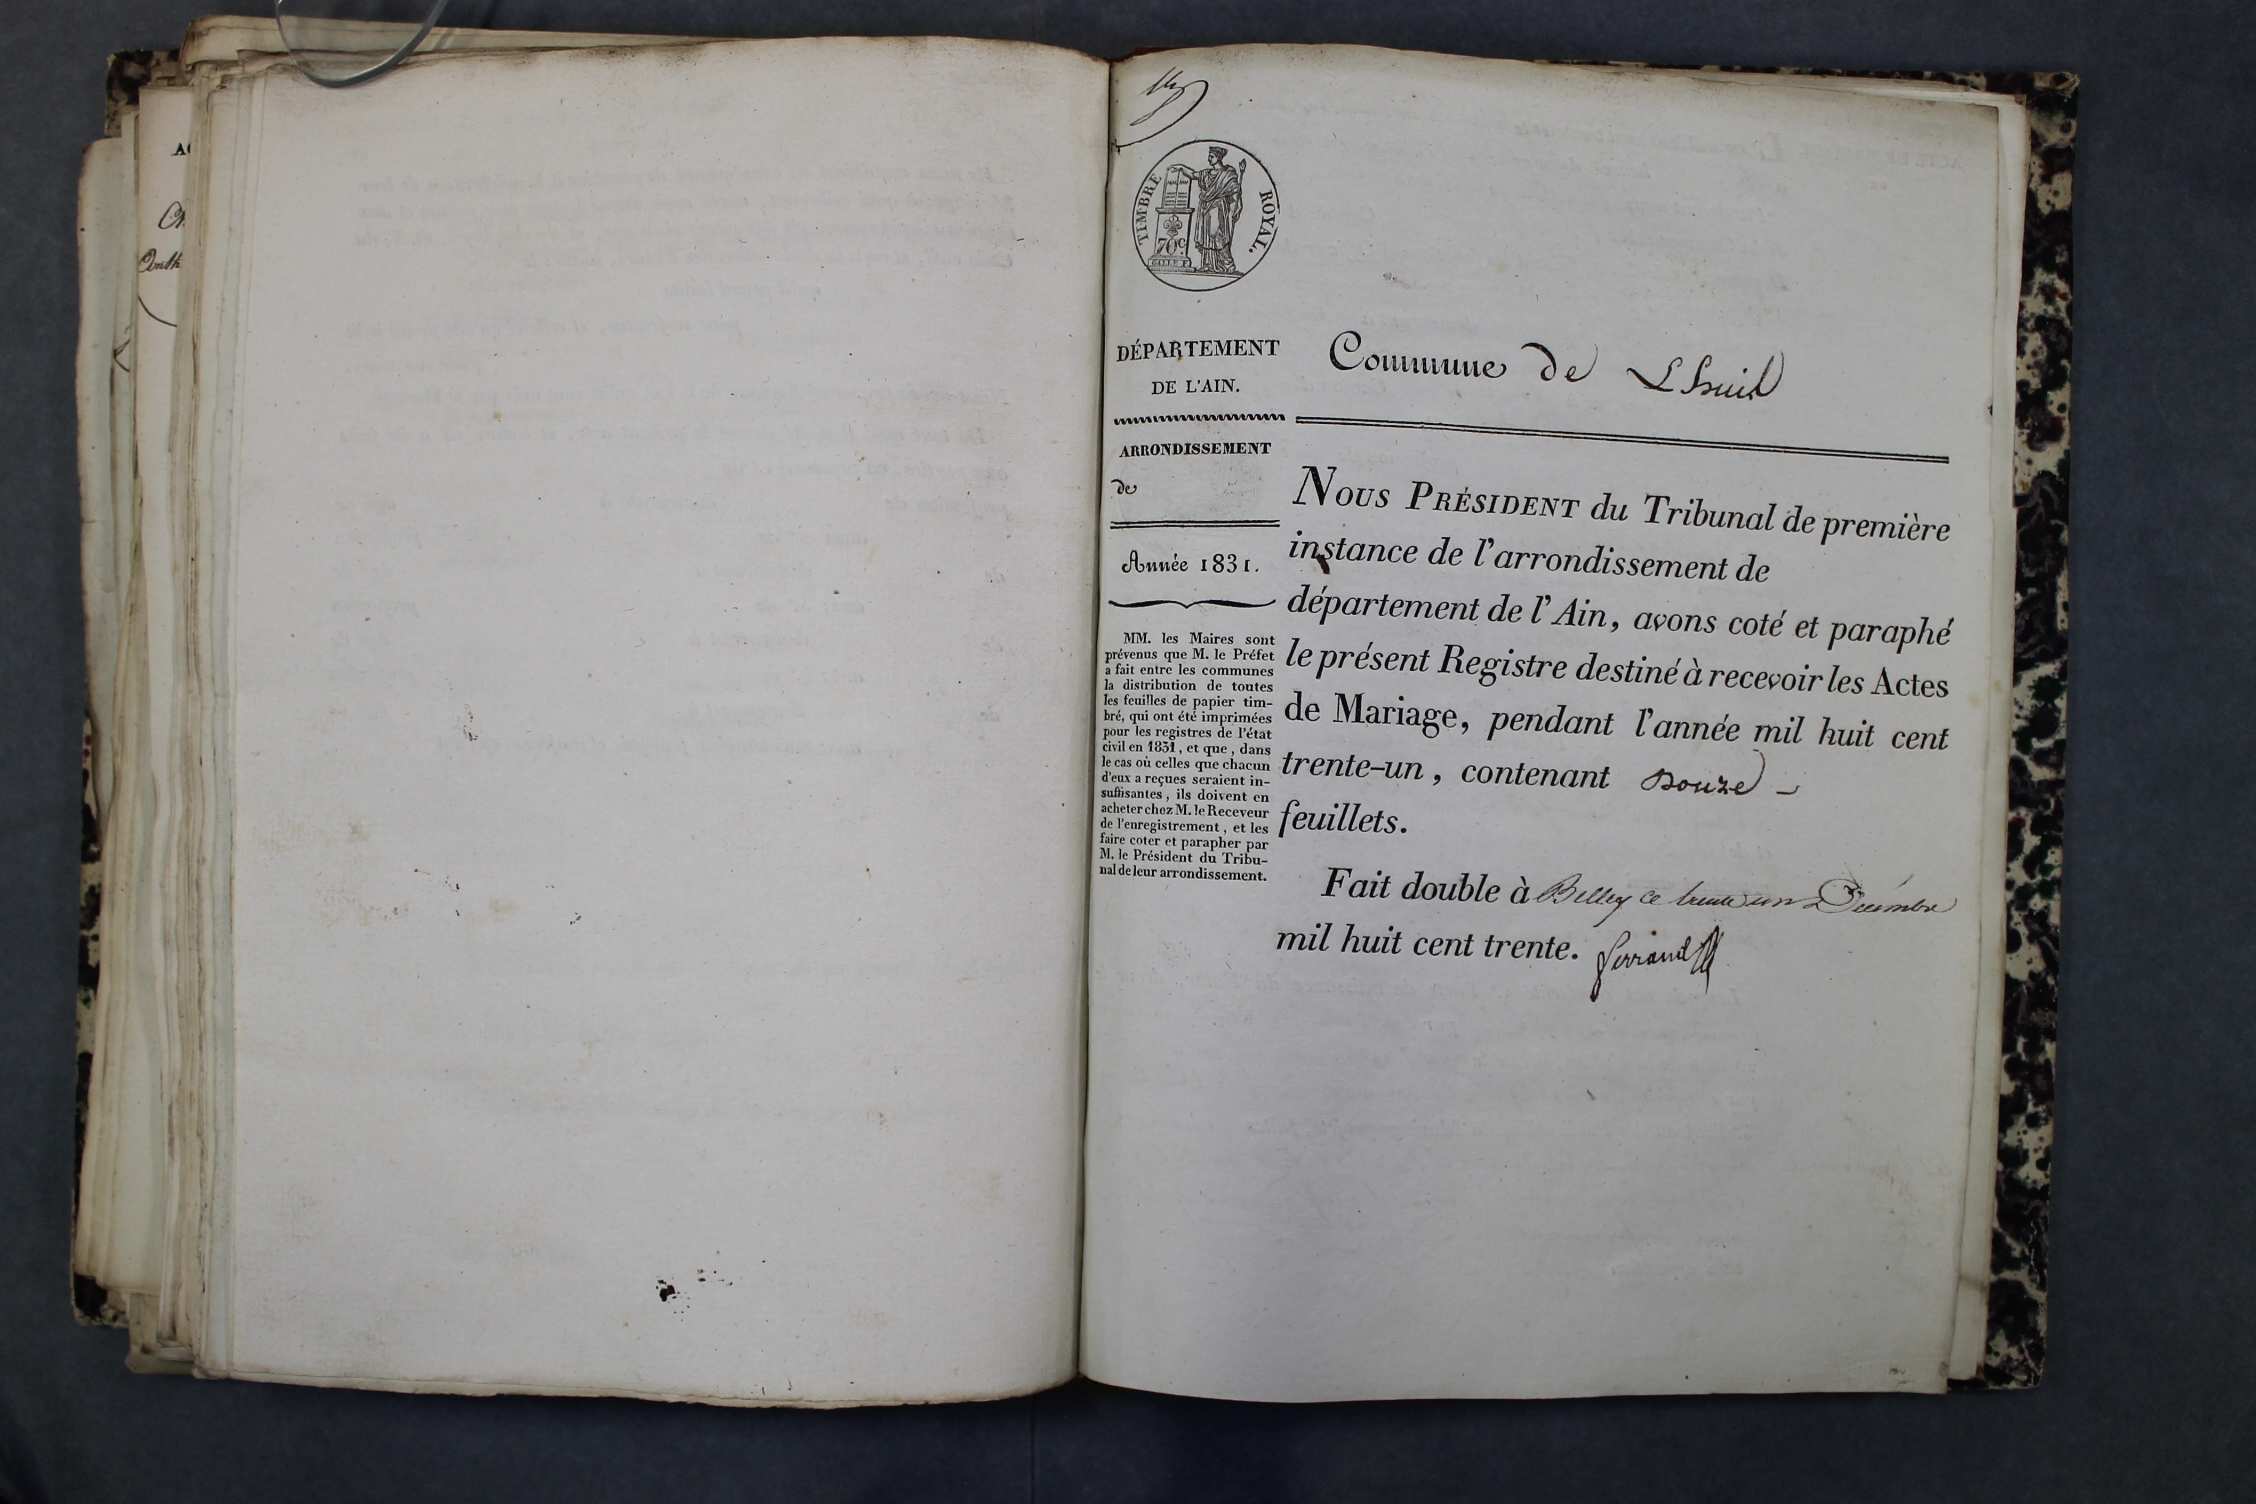 TIMBRE ROYAL.
70c
DÉPARTEMENT
DE L'AIN.
ARRONDISSEMENT
de
Année 1831.
MM. les Maires sont
prévenus que M. le Préfet
a fait entre les communes
la distribution de toutes
les feuilles de papier tim-
bré, qui ont été imprimées
pour les registres de l'état
civil en 1831, et que, dans
le cas où celles que chacun
d'eux a reçues seraient in-
suffisantes, ils doivent en
acheter chez M. le Receveur
de l'enregistrement, et les
faire coter et parapher par
M. le Président du Tribu-
nal de leur arrondissement.
Commune de Lhuis
NOUS PRÉSIDENT du Tribunal de première
instance de l'arrondissement de
département de l'Ain, avons coté et paraphé
le présent Registre destiné à recevoir les Actes
de Mariage, pendant l'année mil huit cent
trente-un, contenant Douze
feuillets.
Fait double à Belley ce trente un Décembre
mil huit cent trente. ferrand